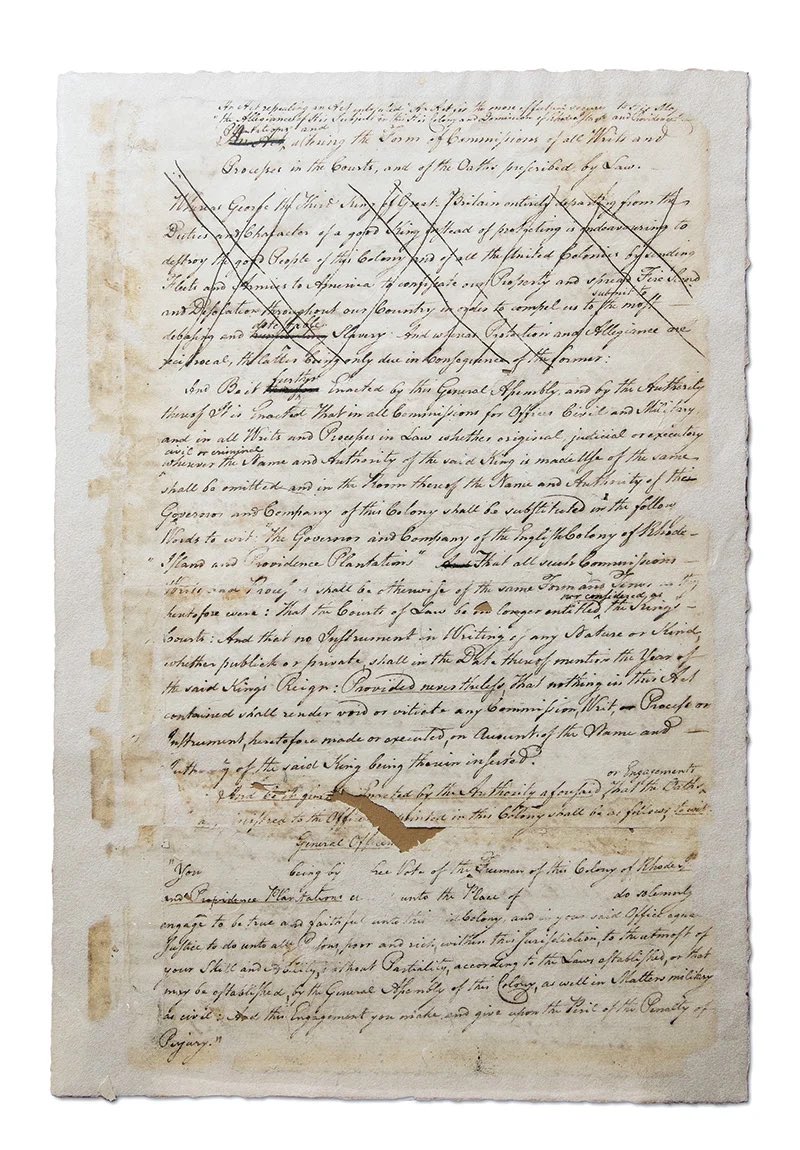 An Act repealing an Act intituled An Act for the more effectual secure to his
the Allegiance of his Subjects in this his Colony and Dominion of Rhode Island and Providence
Plantations and
altering the Form of Commissions of all Writs and
Processes in the Courts, and of the Oaths prescribed by Law.
Whereas George the Third King of Great Britain entirely departing from the
Duties and Character of a good King instead of protecting is endeavouring to
destroy the good People of this Colony and of all the United Colonies by sending
Fleets and Armies to America to confiscate our Property and spread Fire Sword
submit to
and Desolation throughout our Country in order to compel us to the most
detestable
debasing and Slavery And whereas Protection and Allegiance are
reciprocal, the latter being only due in Consequence of the former:
further
And Be it Enacted by this General Assembly, and by the Authority
thereof It is Enacted That in all Commissions for Offices Civil and Military,
and in all Writs and Processes in Law whether original judicial or executory
civil or criminal
wherever the Name and Authority of the said King is made Use of the same
shall be omitted and in the Room thereof the Name and Authority of the
Governor and Company of this Colony shall be substituted in the follow
Words to wit "The Governor and Company of the English Colony of Rhode-
"Island and Providence Plantations" And That all such Commissions
Writs and Process shall be otherwise of the same Form and
nor considered as
heretofore were: That the Courts of Law be no longer entitled the King's
Courts: And that no Instrument in Writing of any Nature or Kind,
whether publick or private, shall in the Date thereof mention the Year of
the said King's Reign: Provided nevertheless, that nothing in this Act
contained shall render void or vitiate any Commission, Writ, or Process or
Instrument, heretofore made or executed, on Account of the Name and
Authority of the said King being therein inserted.
or Engagements
And be it Enacted by the Authority aforesaid that the Oaths
to the in this Colony shall be as follows, to wit
General Officers
"You being by the Vote of the Freemen of this Colony of Rhode Isd
and Providence Plantations unto the Place of do solemnly
engage to be true and faithful unto this Colony, and in your said Office equal
Justice to do unto all Persons, poor and rich, within this Jurisdiction, to the utmost of
your Skill and Ability, without Partiality, according to the Laws established, or that
may be established, by the General Assembly of this Colony, as well in Matters military
as civil: And this Engagement you make and give upon the Peril of the Penalty of
Perjury."